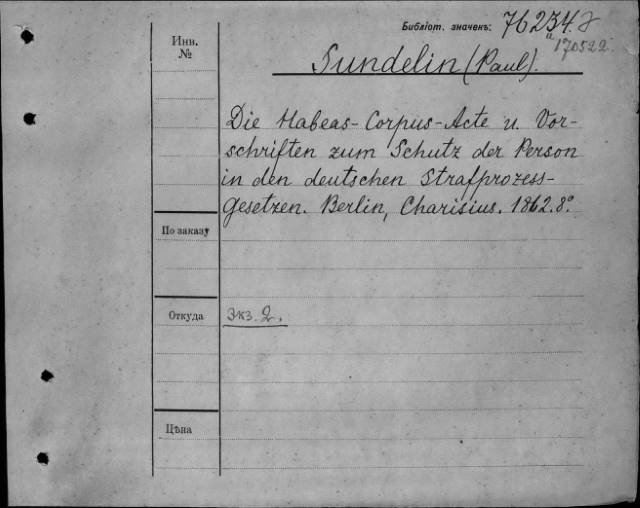 Библіот. значекъ: 76234.8
а 170522
Инв.
№
Sundelin (Paul).
Die Habeas-Corpus-Acte u. Vor-
schriften zum Schutz der Person
in den deutschen Strafprozess-
gesetzen. Berlin, Charisius. 1862. 8º
По заказу
Откуда
Экз. 2.
Цѣна